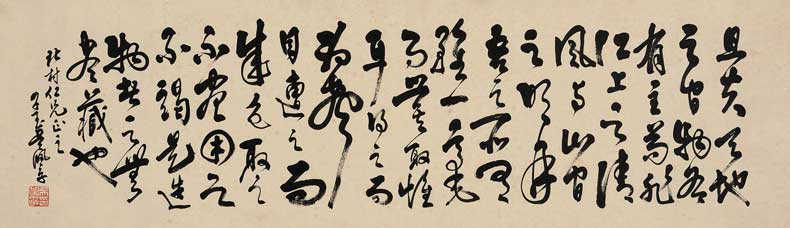 且夫天地
之間物各
有主苟非
江上之清
風与山間
之明月
吾之所有
雖一毫
而莫取惟
耳得之而
為聲
目遇之而
成色取之
不盡用之
不竭是造
物者之無
尽藏也
村仁兄正之